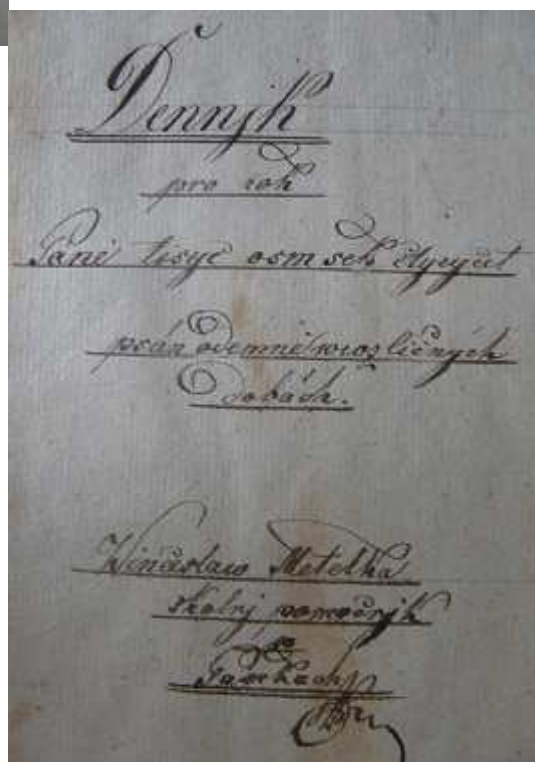 Dennjk
pro rok
Páně tisyc osm set čtyrycet
psán odemně w rozličných
Dobách.
Winceslaw Metelka
školnj pomocnjk
Pasekách